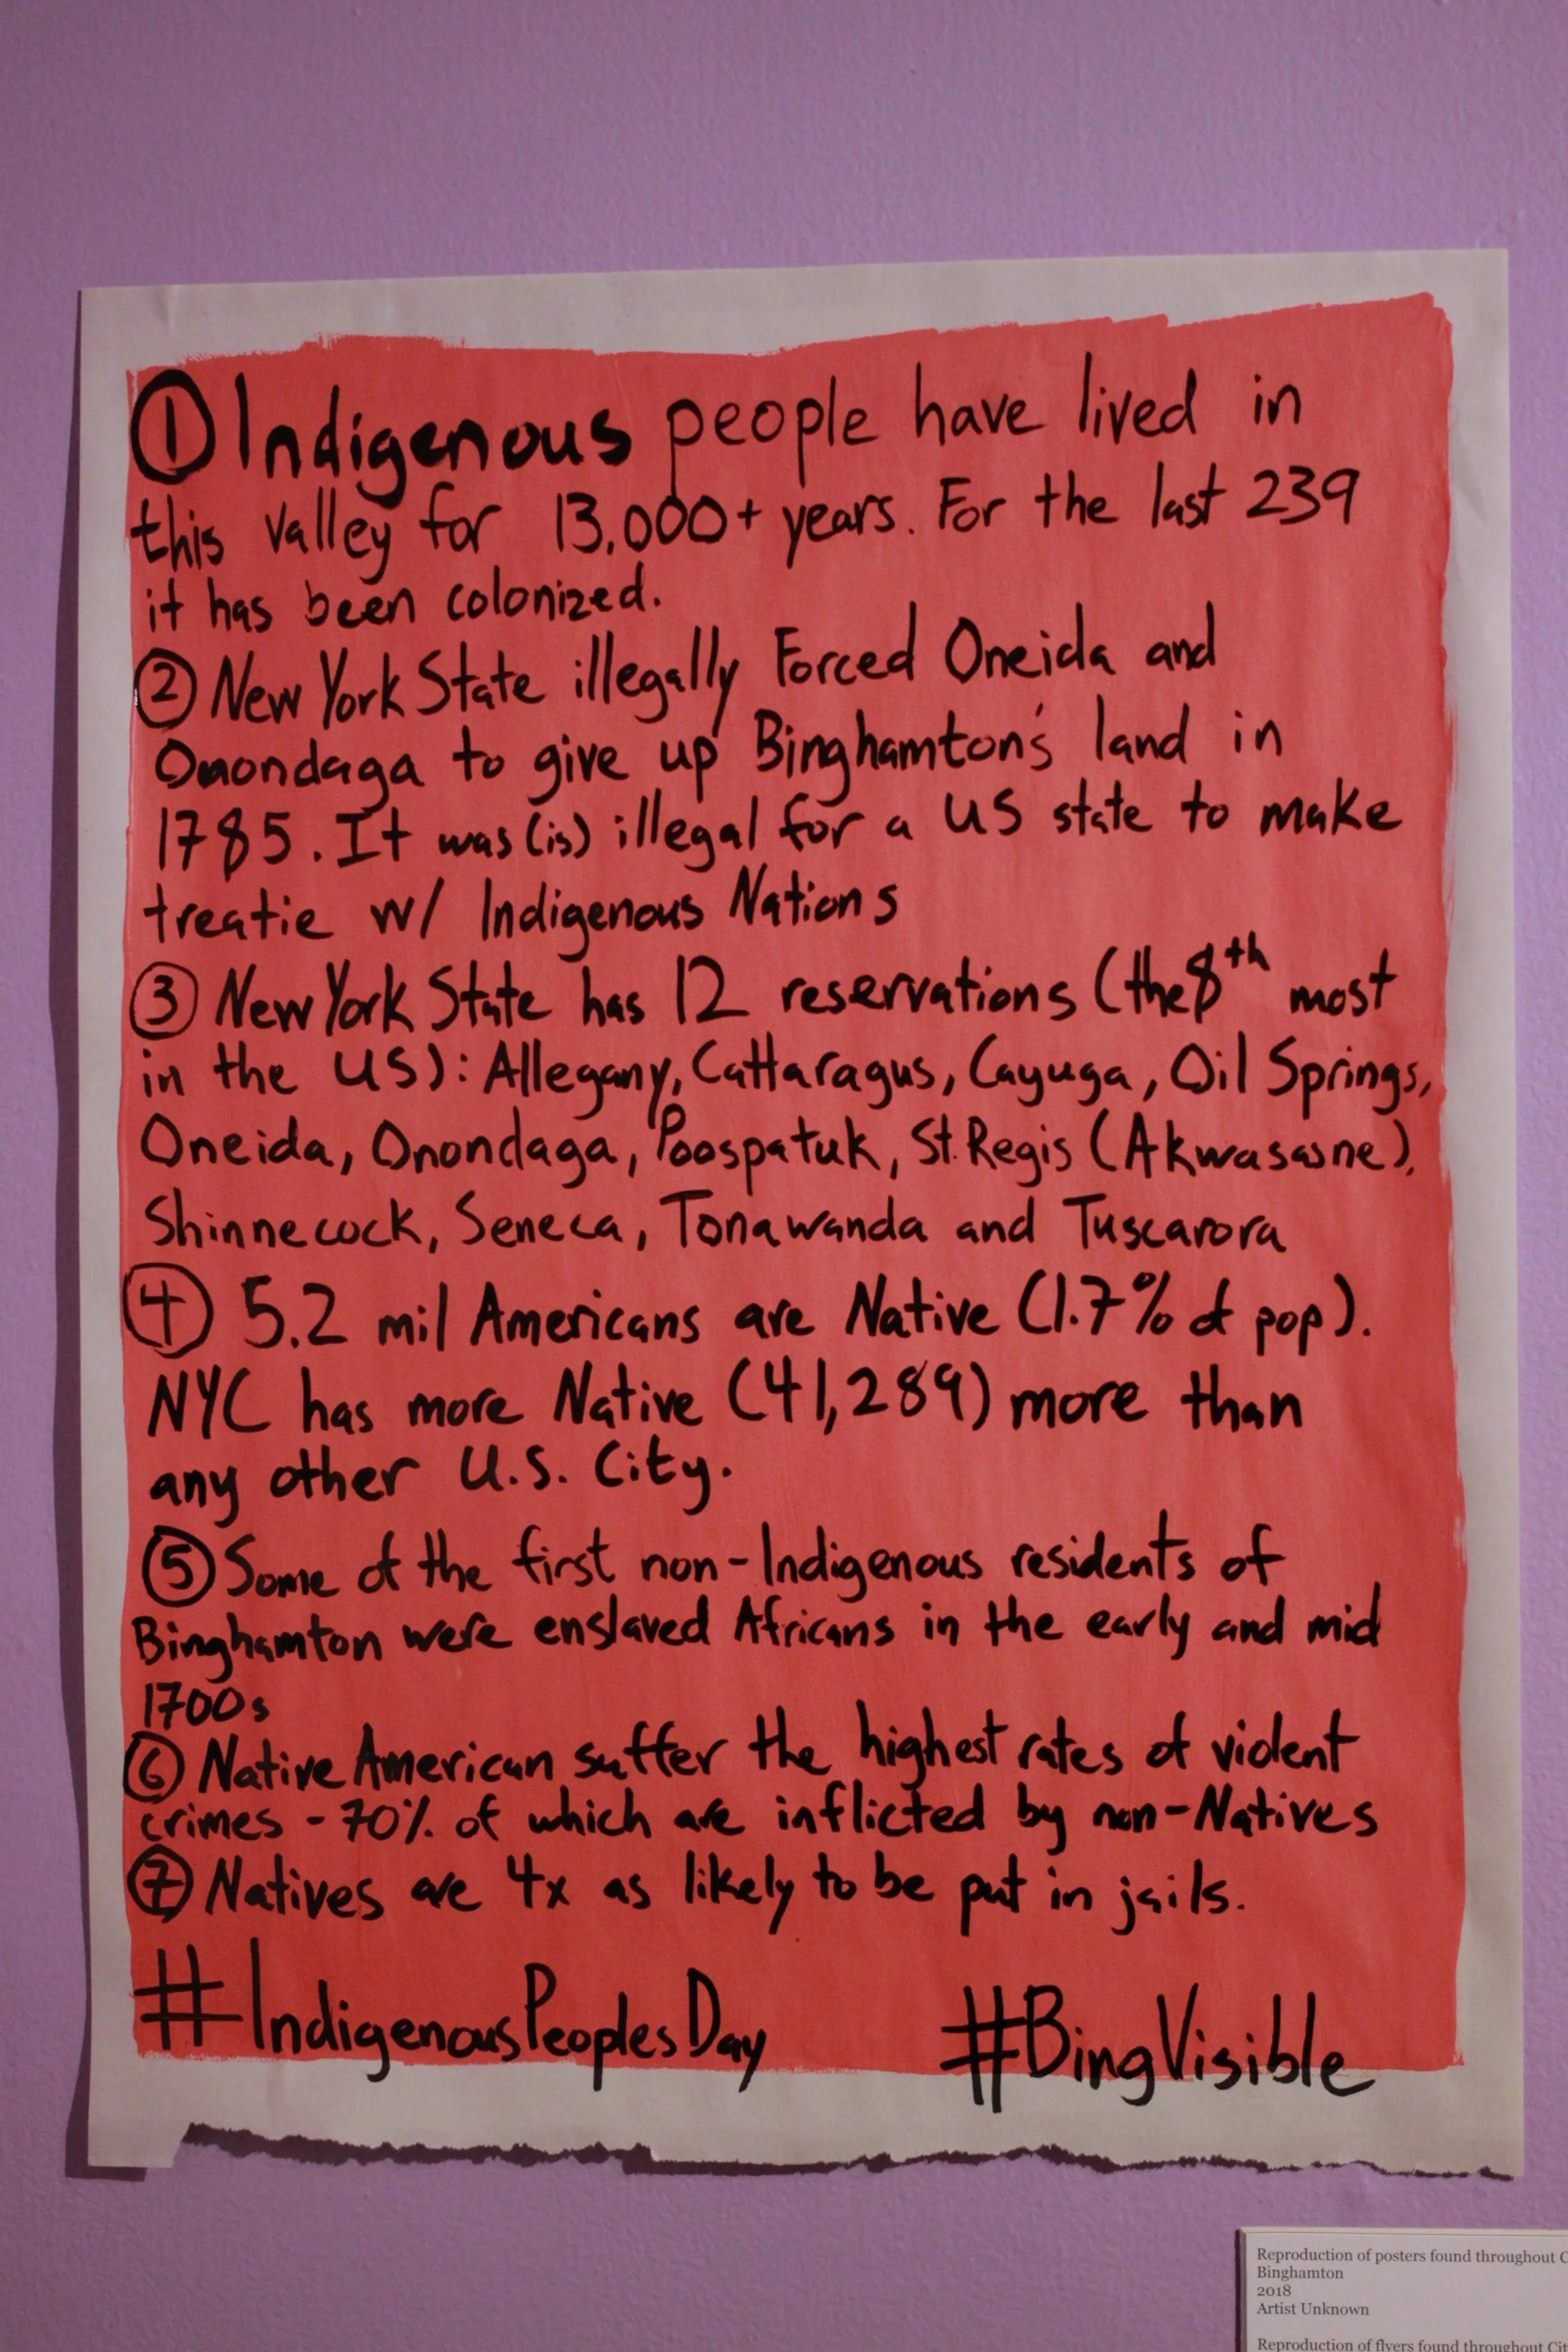 ① Indigenous people have lived in
this valley for 13,000+ years. For the last 239
it has been colonized.
② New York State illegally Forced Oneida and
Onondaga to give up Binghamton's land in
1785. It was (is) illegal for a US state to make
treatie w/ Indigenous Nations
③ New York State has 12 reservations (the 8th most
in the US): Allegany, Cattaragus, Cayuga, Oil Springs,
Oneida, Onondaga, Poospatuk, St. Regis (Akwasasne),
Shinnecock, Seneca, Tonawanda and Tuscarora
④ 5.2 mil Americans are Native (1.7% of pop).
NYC has more Native (41,289) more than
any other U.S. City.
⑤ Some of the first non-Indigenous residents of
Binghamton were enslaved Africans in the early and mid
1700s
⑥ Native American suffer the highest rates of violent
crimes - 70% of which are inflicted by non-Natives
⑦ Natives are 4x as likely to be put in jails.
#IndigenousPeoplesDay #BingVisible
Reproduction of posters found throughout
Binghamton
2018
Artist Unknown
Reproduction of flyers found throughout